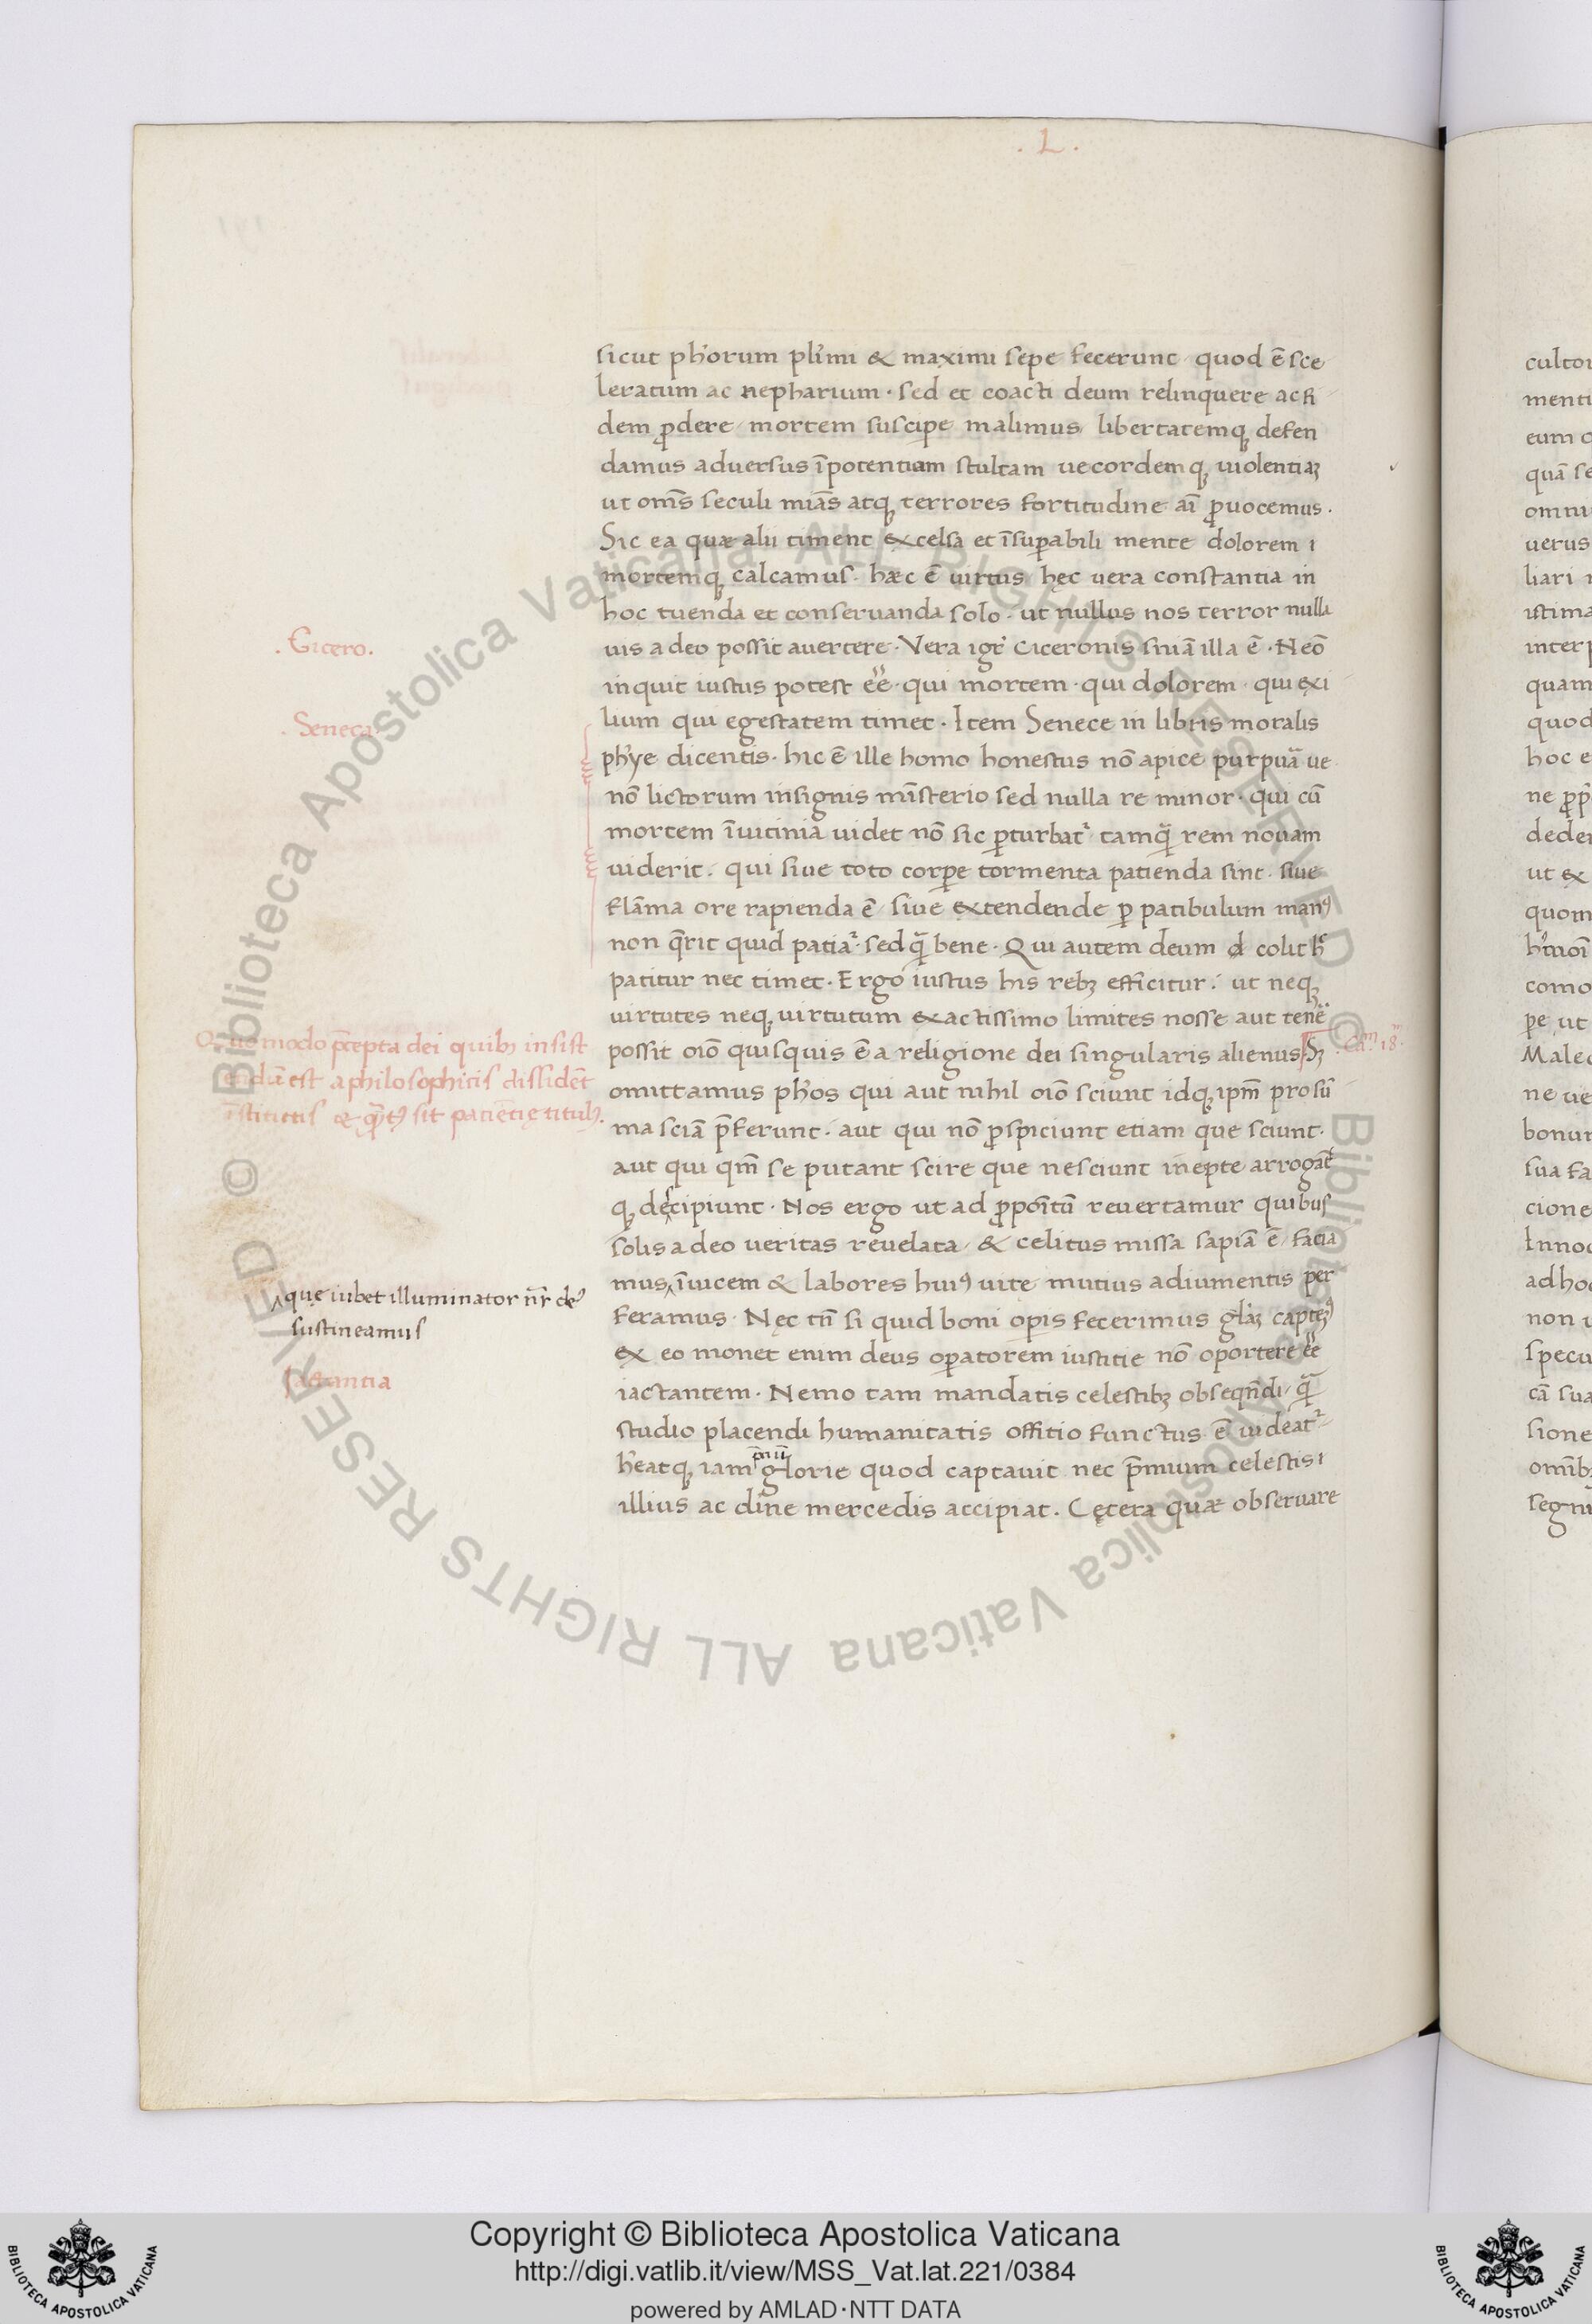 . L .
sicut ph'orum pl'imi & maximi sepe fecerunt quod ē sce
leratum ac nepharium · sed et coacti deum relinquere ac fi
dem ꝓdere mortem suscipe malimus libertatemq; defen
damus adversus īpotentiam stultam uecordemq; uiolentiaȝ
ut om̄s seculi mīas atq; terrores fortitudine aī ꝓuocemus ·
Sic ea quæ alii timent excelsa et īsuꝑabili mente dolorem ı
mortemq; calcamus · hæc ē uirtus hęc uera constantia in
hoc tuenda et conseruanda solo · ut nullus nos terror nulla
uis a deo possit auertere · Vera igr̄ Ciceronis snīa illa ē · Neō
inquit iustus potest eē · qui mortem · qui dolorem · qui exi
lium qui egestatem timet · Item Senece in libris moralis
ph'ye dicentis · hic ē ille homo honestus nō apice purpuā ue
nō lictorum insignis mīsterio sed nulla re minor · qui cū
mortem īuicinia uidet nō sic ꝑturbat' tamq̄ rem nouam
uiderit · qui siue toto corꝑe tormenta patienda sint · siue
flāma ore rapienda ē siue extendende ꝑ patibulum man9
non q̄rit quid patia' · sed q̄ bene · Qui autem deum colit h'
patitur nec timet · Ergo iustus his rebȝ efficitur · ut neq;
uirtutes neq; uirtutum exactissimo limites nosse aut tenē
possit oīo quisquis ē a religione dei singularis alienus Sȝ
omittamus ph'os qui aut nihil oīo sciunt idq; ipm̄ pro sū
ma sciā p̄ferunt · aut qui nō ꝑspiciunt etiam que sciunt ·
aut qui qm̄ se putant scire que nesciunt inepte arrogāt
q; decipiunt · Nos ergo ut ad ꝓpoītū reuertamur quibus
solis a deo ueritas reuelata & celitus missa sapiā ē facia
mus īuicem & labores hui9 uite mutius adiumentis per
feramus · Nęc tn̄ si quid boni oꝑis fecerimus gl'aȝ captęȝ9
ex eo monet enim deus oꝑatorem iustitie nō oportere eē
iactantem · Nemo tam mandatis celestibȝ obseqn̄di q̄
studio placendi humanitatis offitio functus ē uideat'
h'eatq; iam p̄miū glorie quod captauit nec p̄mium celestis ı
illius ac diīne mercedis accipiat · Cętera quæ obseruare
. Cicero.
. Seneca.
Quomodo p̄cepta dei quibȝ insist
endū est a philosophicis dissidēt
īstitutis & q̄t9 sit patiētię titul9.
. Cam 18m.
que iubet illuminator nr̄ de9
sustineamus
Iactantia
Copyright © Biblioteca Apostolica Vaticana
http://digi.vatlib.it/view/MSS_Vat.lat.221/0384
powered by AMLAD·NTT DATA
BIBLIOTECA APOSTOLICA VATICANA
BIBLIOTECA APOSTOLICA VATICANA
© Biblioteca Apostolica Vaticana ALL RIGHTS RESERVED © Biblioteca Apostolica Vaticana ALL RIGHTS RESERVED